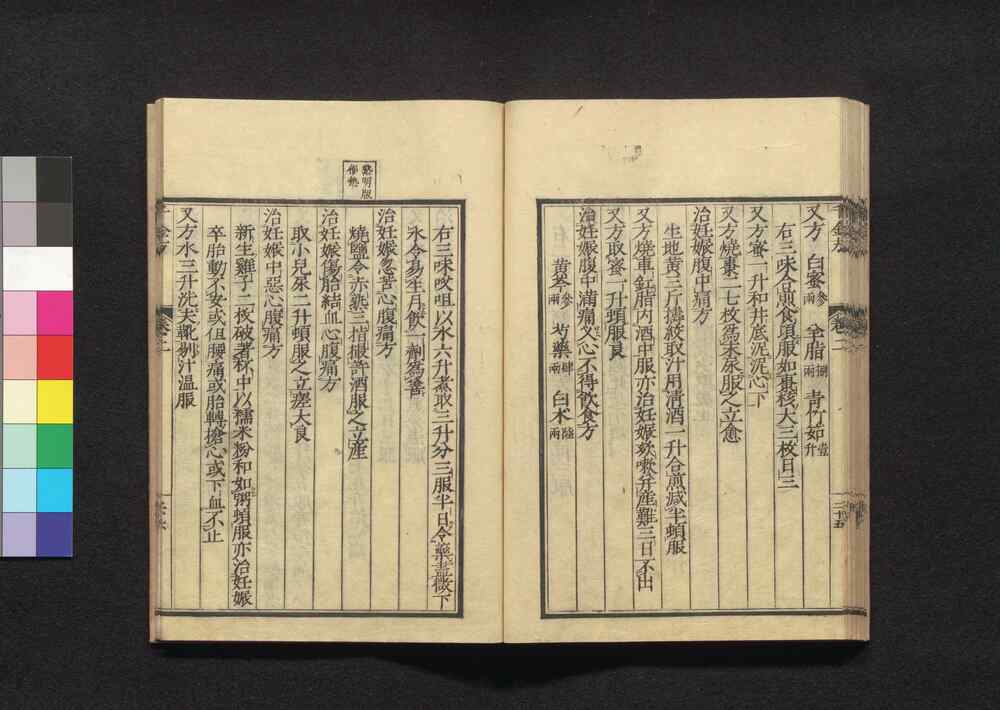 又方 白蜜叁兩 羊脂捌兩 青竹茹壹升
右三味合煎食頃服如棗核大三枚日三
又方蜜一升和井底泥泥心下
又方燒棗二七枚爲末尿服之立愈
治妊娠腹中痛方
生地黃三斤擣絞取汁用清酒一升合煎減半頓服
又方燒車釭脂内酒中服亦治妊娠欬嗽并産難三日不出
又方取蜜一升頓服良
治妊娠腹中滿痛叉心不得飲食方
黄芩叁兩 芍藥肆兩 白朮陸兩
千金方
卷二
二十五
右三味㕮咀以水六升煮取三升分三服半日令藥盡微下
水令易生月飲一劑爲善
治妊娠忽苦心腹痛方
燒鹽令赤熟三指撮許酒服之立産
治妊娠傷胎結血心腹痛方
取小兒尿二升頓服之立瘥大良
治妊娠中惡心腹痛方
新生雞子二枚破著杯中以糯米粉和如粥頓服亦治妊娠
卒胎動不安或但腰痛或胎轉搶心或下血不止
又方水三升洗夫靴剔汁温服
卷二